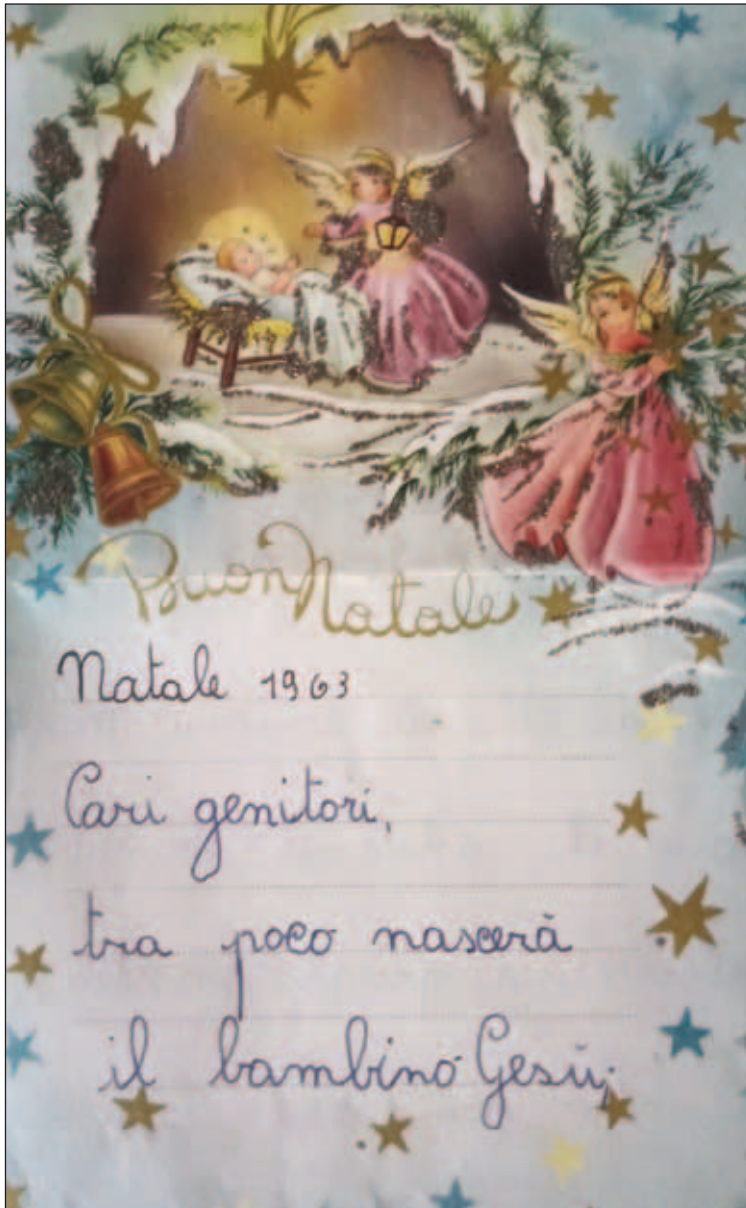 Buon Natale
Natale 1963
Cari genitori,
tra poco nascerà
il bambino Gesù,